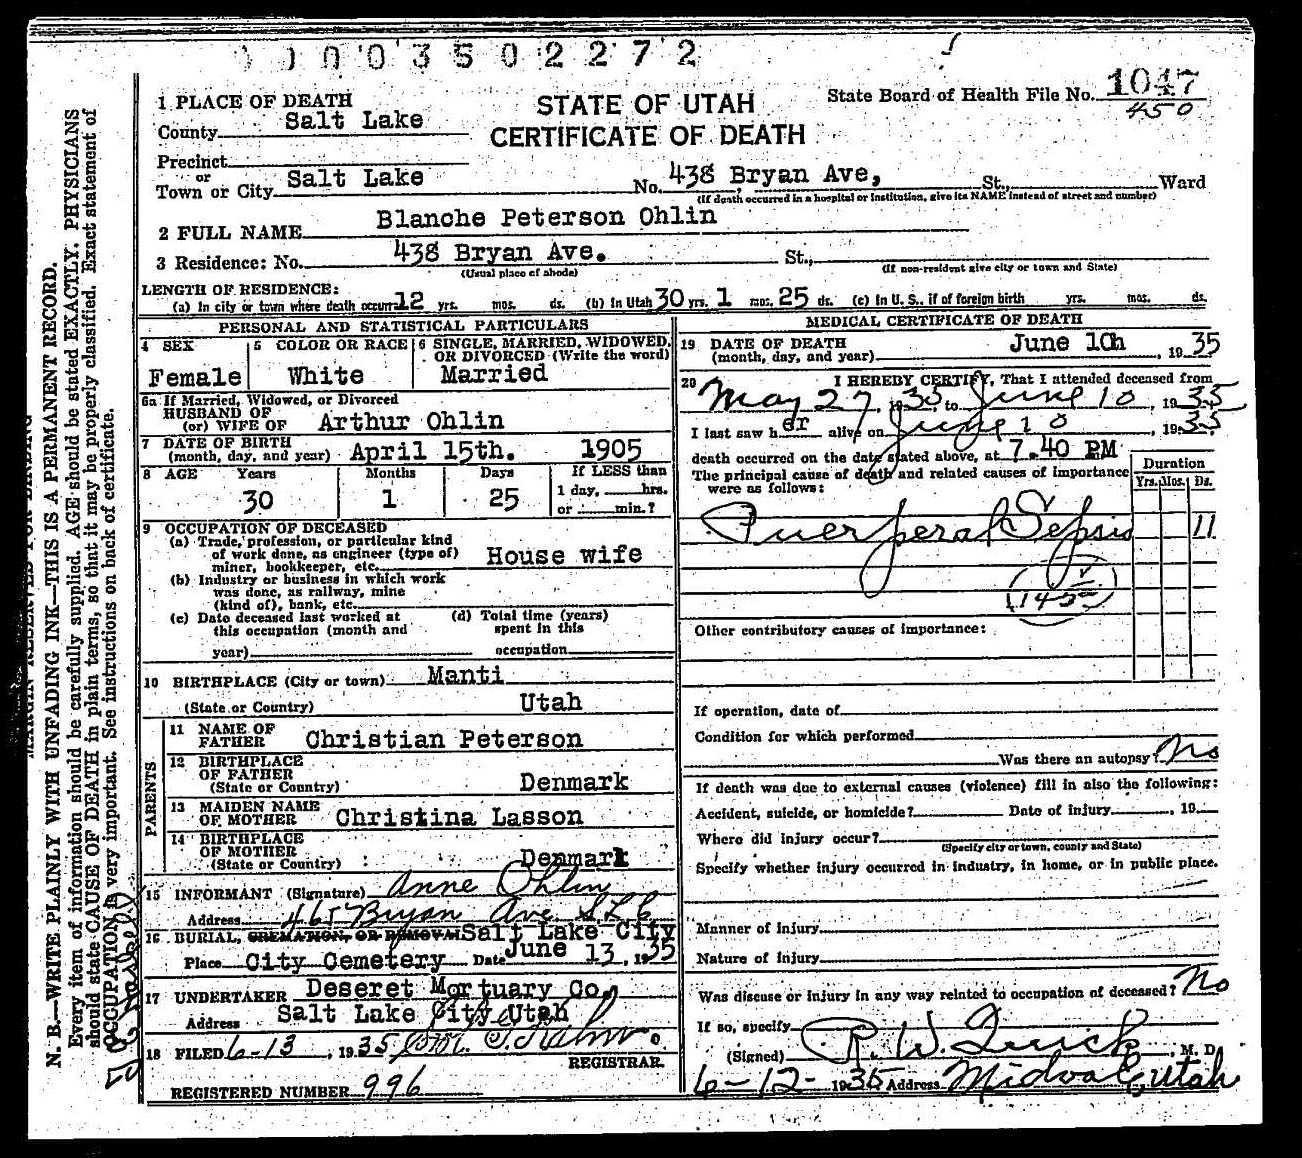 0003502272
1 PLACE OF DEATH
STATE OF UTAH
CERTIFICATE OF DEATH
State Board of Health File No. 1047
450
County Salt Lake
Precinct
or
Town or City Salt Lake No. 438 Bryan Ave, St., Ward
(If death occurred in a hospital or institution, give its NAME instead of street and number)
2 FULL NAME Blanche Peterson Ohlin
3 Residence: No. 438 Bryan Ave. St.,
(Usual place of abode) (If non-resident give city or town and State)
LENGTH OF RESIDENCE:
(a) In city or town where death occurr 12 yrs. mos. ds. (b) In Utah 30 yrs. 1 mos. 25 ds. (c) In U. S., if of foreign birth yrs. mos. ds.
PERSONAL AND STATISTICAL PARTICULARS
4 SEX Female
5 COLOR OR RACE White
6 SINGLE, MARRIED, WIDOWED, OR DIVORCED (Write the word) Married
6a If Married, Widowed, or Divorced
HUSBAND OF
(or) WIFE OF Arthur Ohlin
7 DATE OF BIRTH
(month, day, and year) April 15th. 1905
8 AGE Years Months Days If LESS than
30 1 25 1 day, hrs.
or min.?
9 OCCUPATION OF DECEASED
(a) Trade, profession, or particular kind
of work done, as engineer (type of)
miner, bookkeeper, etc. House wife
(b) Industry or business in which work
was done, as railway, mine
(kind of), bank, etc.
(c) Date deceased last worked at
this occupation (month and
year)
(d) Total time (years)
spent in this
occupation
10 BIRTHPLACE (City or town) Manti
(State or Country) Utah
PARENTS
11 NAME OF
FATHER Christian Peterson
12 BIRTHPLACE
OF FATHER
(State or Country) Denmark
13 MAIDEN NAME
OF MOTHER Christina Lasson
14 BIRTHPLACE
OF MOTHER
(State or Country) Denmark
15 INFORMANT (Signature) Anne Ohlin
Address 465 Bryan Ave S.L.C
16 BURIAL, CREMATION, OR REMOVAL Salt Lake City
Place City Cemetery Date June 13, 1935
17 UNDERTAKER Deseret Mortuary Co,
Address Salt Lake City Utah
18 FILED 6-13, 1935
REGISTRAR.
REGISTERED NUMBER 996
MEDICAL CERTIFICATE OF DEATH
19 DATE OF DEATH
(month, day, and year) June 10h, 1935
20 I HEREBY CERTIFY, That I attended deceased from
May 27, 1935, to June 10, 1935
I last saw her alive on June 10, 1935
death occurred on the date stated above, at 7.40 PM
The principal cause of death and related causes of importance
were as follows:
Duration
Yrs. Mos. Ds.
Puerperal Sepsis 11
Other contributory causes of importance:
If operation, date of
Condition for which performed
Was there an autopsy? No
If death was due to external causes (violence) fill in also the following:
Accident, suicide, or homicide? Date of injury, 19
Where did injury occur?
(Specify city or town, county and State)
Specify whether injury occurred in industry, in home, or in public place.
Manner of injury
Nature of injury
Was disease or injury in any way related to occupation of deceased? No
If so, specify
(Signed) R. W. Quick, M. D.
6-12-1935 Address Midvale, Utah
N. B.—WRITE PLAINLY WITH UNFADING INK—THIS IS A PERMANENT RECORD.
Every item of information should be carefully supplied. AGE should be stated EXACTLY. PHYSICIANS
should state CAUSE OF DEATH in plain terms, so that it may be properly classified. Exact statement of
OCCUPATION is very important. See instructions on back of certificate.